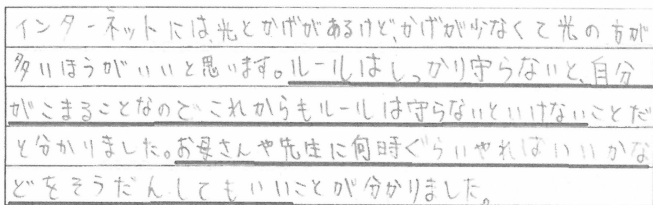 インターネットには、光とかげがあるけど、かげが少なくて光の方が
多いほうがいいと思います。ルールはしっかり守らないと、自分
がこまることなのでこれからもルールは守らないといけないことだ
と分かりました。お母さんや先生に何時ぐらいやればいいかな
どをそうだんしてもいいことが分かりました。